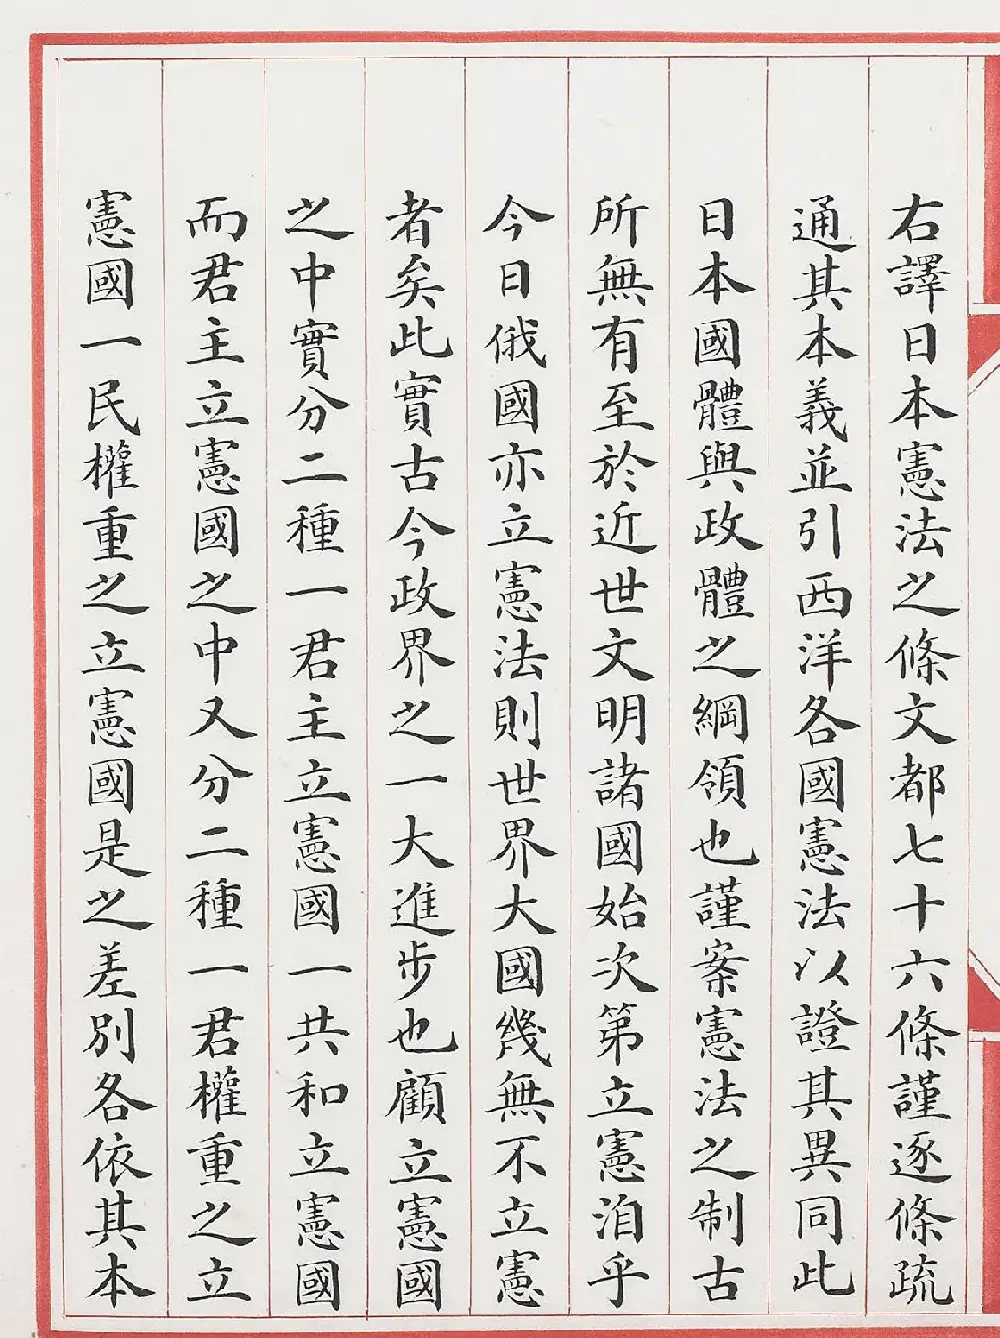 右譯日本憲法之條文都七十六條謹逐條疏
通其本義並引西洋各國憲法以證其異同此
日本國體與政體之綱領也謹案憲法之制古
所無有至於近世文明諸國始次第立憲洎乎
今日俄國亦立憲法則世界大國幾無不立憲
者矣此實古今政界之一大進步也顧立憲國
之中實分二種一君主立憲國一共和立憲國
而君主立憲國之中又分二種一君權重之立
憲國一民權重之立憲國是之差別各依其本